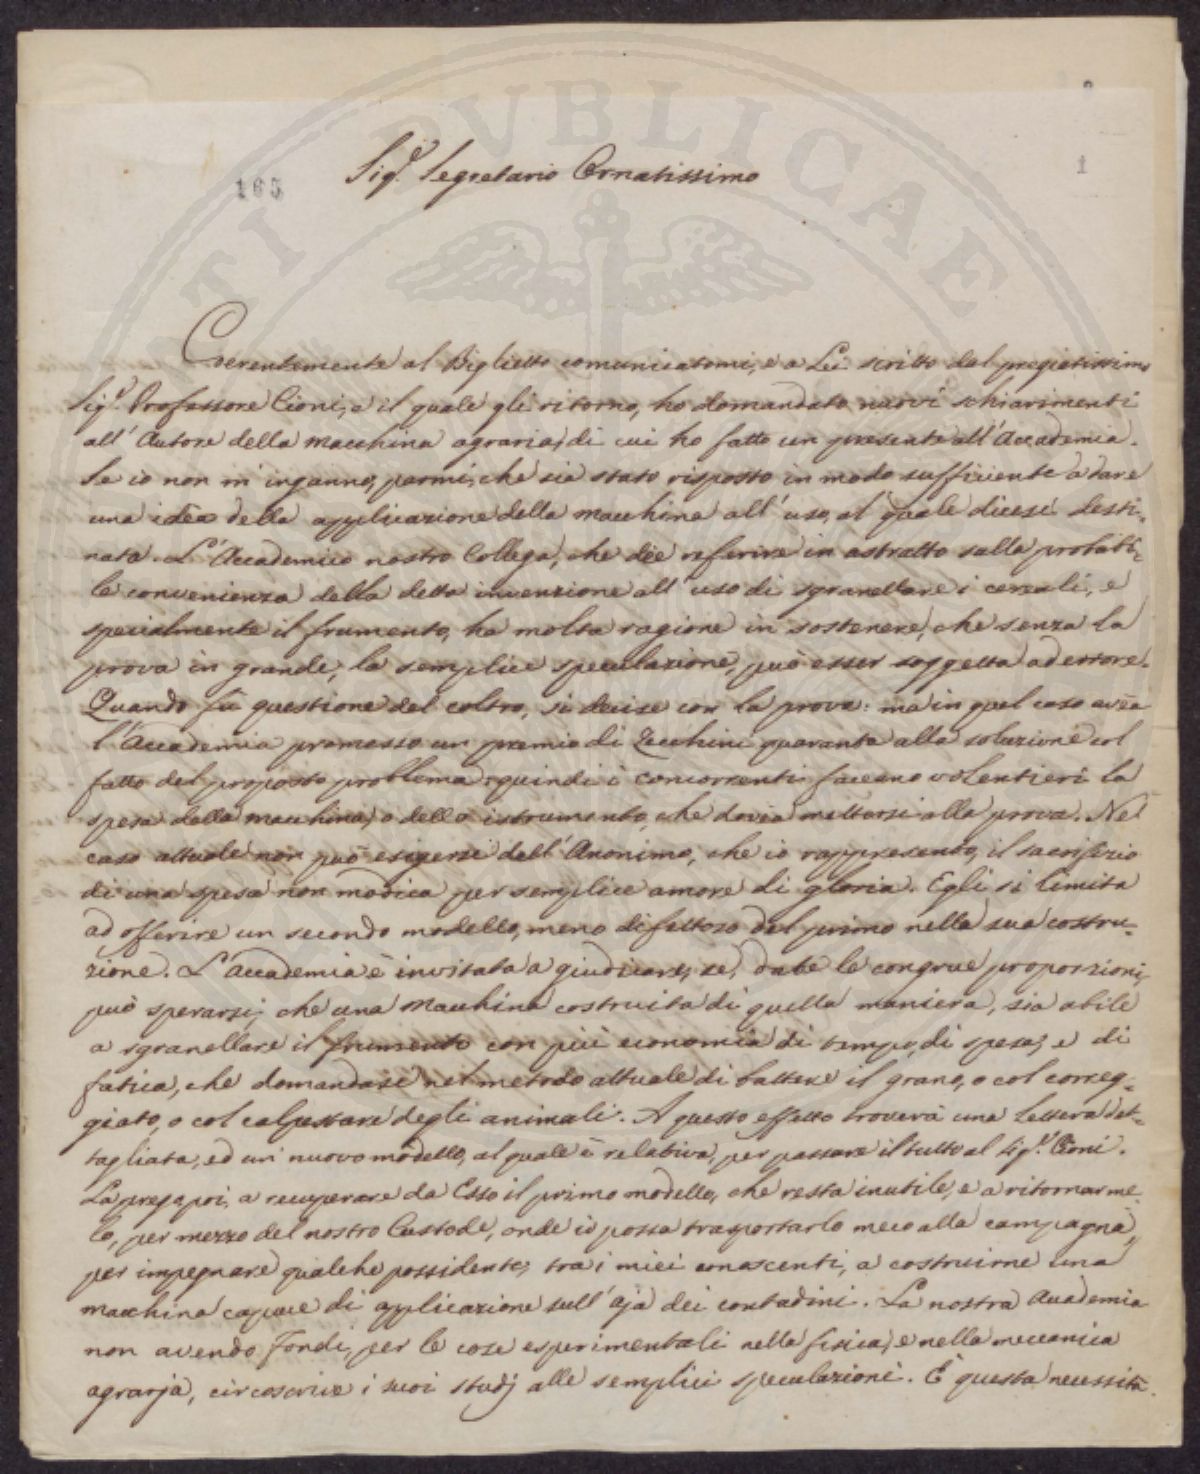 165
1
Sig.r Segretario Ornatissimo
Coerentemente al Biglietto comunicatomi, e a Lei scritto dal pregiatissimo
Sig.r Professore Cioni, e il quale gli ritorno, ho domandato nuovi schiarimenti
all' Autore della macchina agraria, di cui ho fatto un presente all' Accademia.
Se io non m' inganno, parmi, che sia stato risposto in modo sufficiente a dare
una idea della applicazione della macchina all' uso, al quale dicesi desti-
nata. L' Accademico nostro Collega, che dee referire in astratto sulla probabi-
le convenienza della detta invenzione all' uso di sgranellare i cereali, e
specialmente il frumento, ha molta ragione in sostenere, che senza la
prova in grande, la semplice speculazione, può esser soggetta ad errore.
Quando fù questione del coltro, si decise con la prova: ma in quel caso avea
l' Accademia promesso un premio di Zecchini quaranta alla soluzione col
fatto del proposto problema: quindi i concorrenti faceano volentieri la
spesa della macchina, o dello istrumento, che dovea mettersi alla prova. Nel
caso attuale non può esigersi dall' Anonimo, che io rappresento, il sacrifizio
di una spesa non modica per semplice amore di gloria. Egli si limita
ad offerire un secondo modello, meno difettoso del primo nella sua costru-
zione. L' Accademia è invitata a giudicare, se, date le congrue proporzioni,
può sperarsi, che una macchina costruita di quella maniera, sia abile
a sgranellare il frumento con più economia di tempo, di spesa, e di
fatica, che domandasi nel metodo attuale di battere il grano, o col correg-
giato, o col calpestare degli animali. A questo effetto troverà una lettera det-
tagliata, ed un nuovo modello, al quale è relativa, per passare il tutto al Sig.r Cioni.
La prego poi, a recuperare da Esso il primo modello, che resta inutile, e a ritornarme-
lo, per mezzo del nostro Custode, onde io possa trasportarlo meco alla campagna,
per impegnare qualche possidente, tra i miei conoscenti, a costruirne una
macchina capace di applicazione sull' aja dei contadini. La nostra Accademia
non avendo Fondi, per le cose esperimentali nella fisica, e nella meccanica
agraria, circoscrive i suoi studj alle semplici speculazioni. È questa necessità